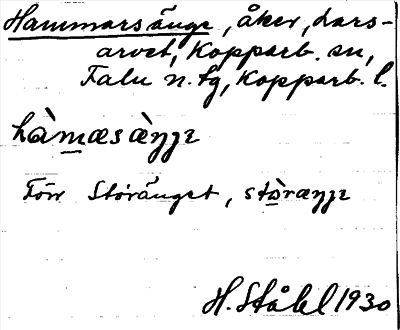 Hammarsänge, åker, Lars-
arvet, Kopparb. sn,
Falu n. tg, Kopparb. l.
hàmæsæ̀ŋe
Förr Storänget, stòræŋe
H. Ståhl 1930